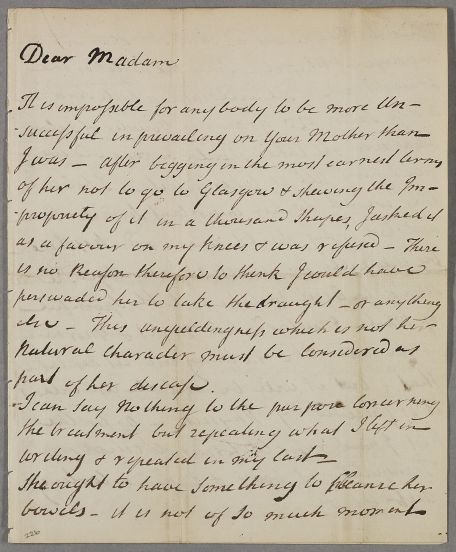 Dear Madam
It is impossible for any body to be more Un-
successful in prevailing on Your Mother than
I was - after begging in the most earnest terms
of her not to go to Glasgow & shewing the Im-
propriety of it in a thousand Shapes, I asked it
as a favour on my Knees & was refused - There
is no Reason therefore to think I could have
perswaded her to take the draught - or any thing
else - This unyieldingness which is not her
Natural Character must be considered as
part of her disease.
I can say Nothing to the purpose concerning
the treatment but repeating what I left in
writing & repeated in my last -
She ought to have Something to cleanse her
bowels - it is not of So much moment
226